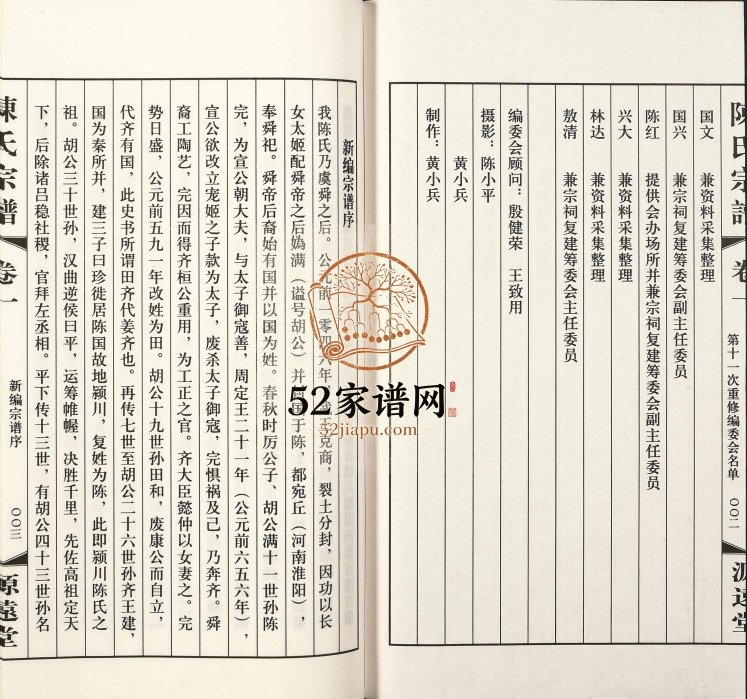 陳氏宗譜
卷一
第十一次重修编委会名单
〇〇二
源遠堂
国文 兼资料采集整理
国兴 兼宗祠复建筹委会副主任委员
陈红 提供会办场所并兼宗祠复建筹委会副主任委员
兴大 兼资料采集整理
林达 兼资料采集整理
敖清 兼宗祠复建筹委会主任委员
编委会顾问：殷健荣 王致用
摄影：陈小平
黄小兵
制作：黄小兵
新编宗谱序
我陈氏乃虞舜之后。公元前一零四六年，武王克商，裂土分封，因功以长
女太姬配舜帝之后妫满（谥号胡公）并封国于陈，都宛丘（河南淮阳），
奉舜祀。舜帝后裔始有国并以国为姓。春秋时厉公子、胡公满十一世孙陈
完，为宣公朝大夫，与太子御寇善，周定王二十一年（公元前六五六年），
宣公欲改立宠姬之子款为太子，废杀太子御寇，完惧祸及己，乃奔齐。舜
裔工陶艺，完因而得齐桓公重用，为工正之官。齐大臣懿仲以女妻之。完
势日盛，公元前五九一年改姓为田。胡公十九世孙田和，废康公而自立，
代齐有国，此史书所谓田齐代姜齐也。再传七世至胡公二十六世孙齐王建，
国为秦所并，建三子曰珍徙居陈国故地颍川，复姓为陈，此即颍川陈氏之
祖。胡公三十世孙，汉曲逆侯曰平，运筹帷幄，决胜千里，先佐高祖定天
下，后除诸吕稳社稷，官拜左丞相。平下传十三世，有胡公四十三世孙名
陳氏宗譜
卷一
新编宗谱序
〇〇三
源遠堂
52家谱网
52jiapu.com